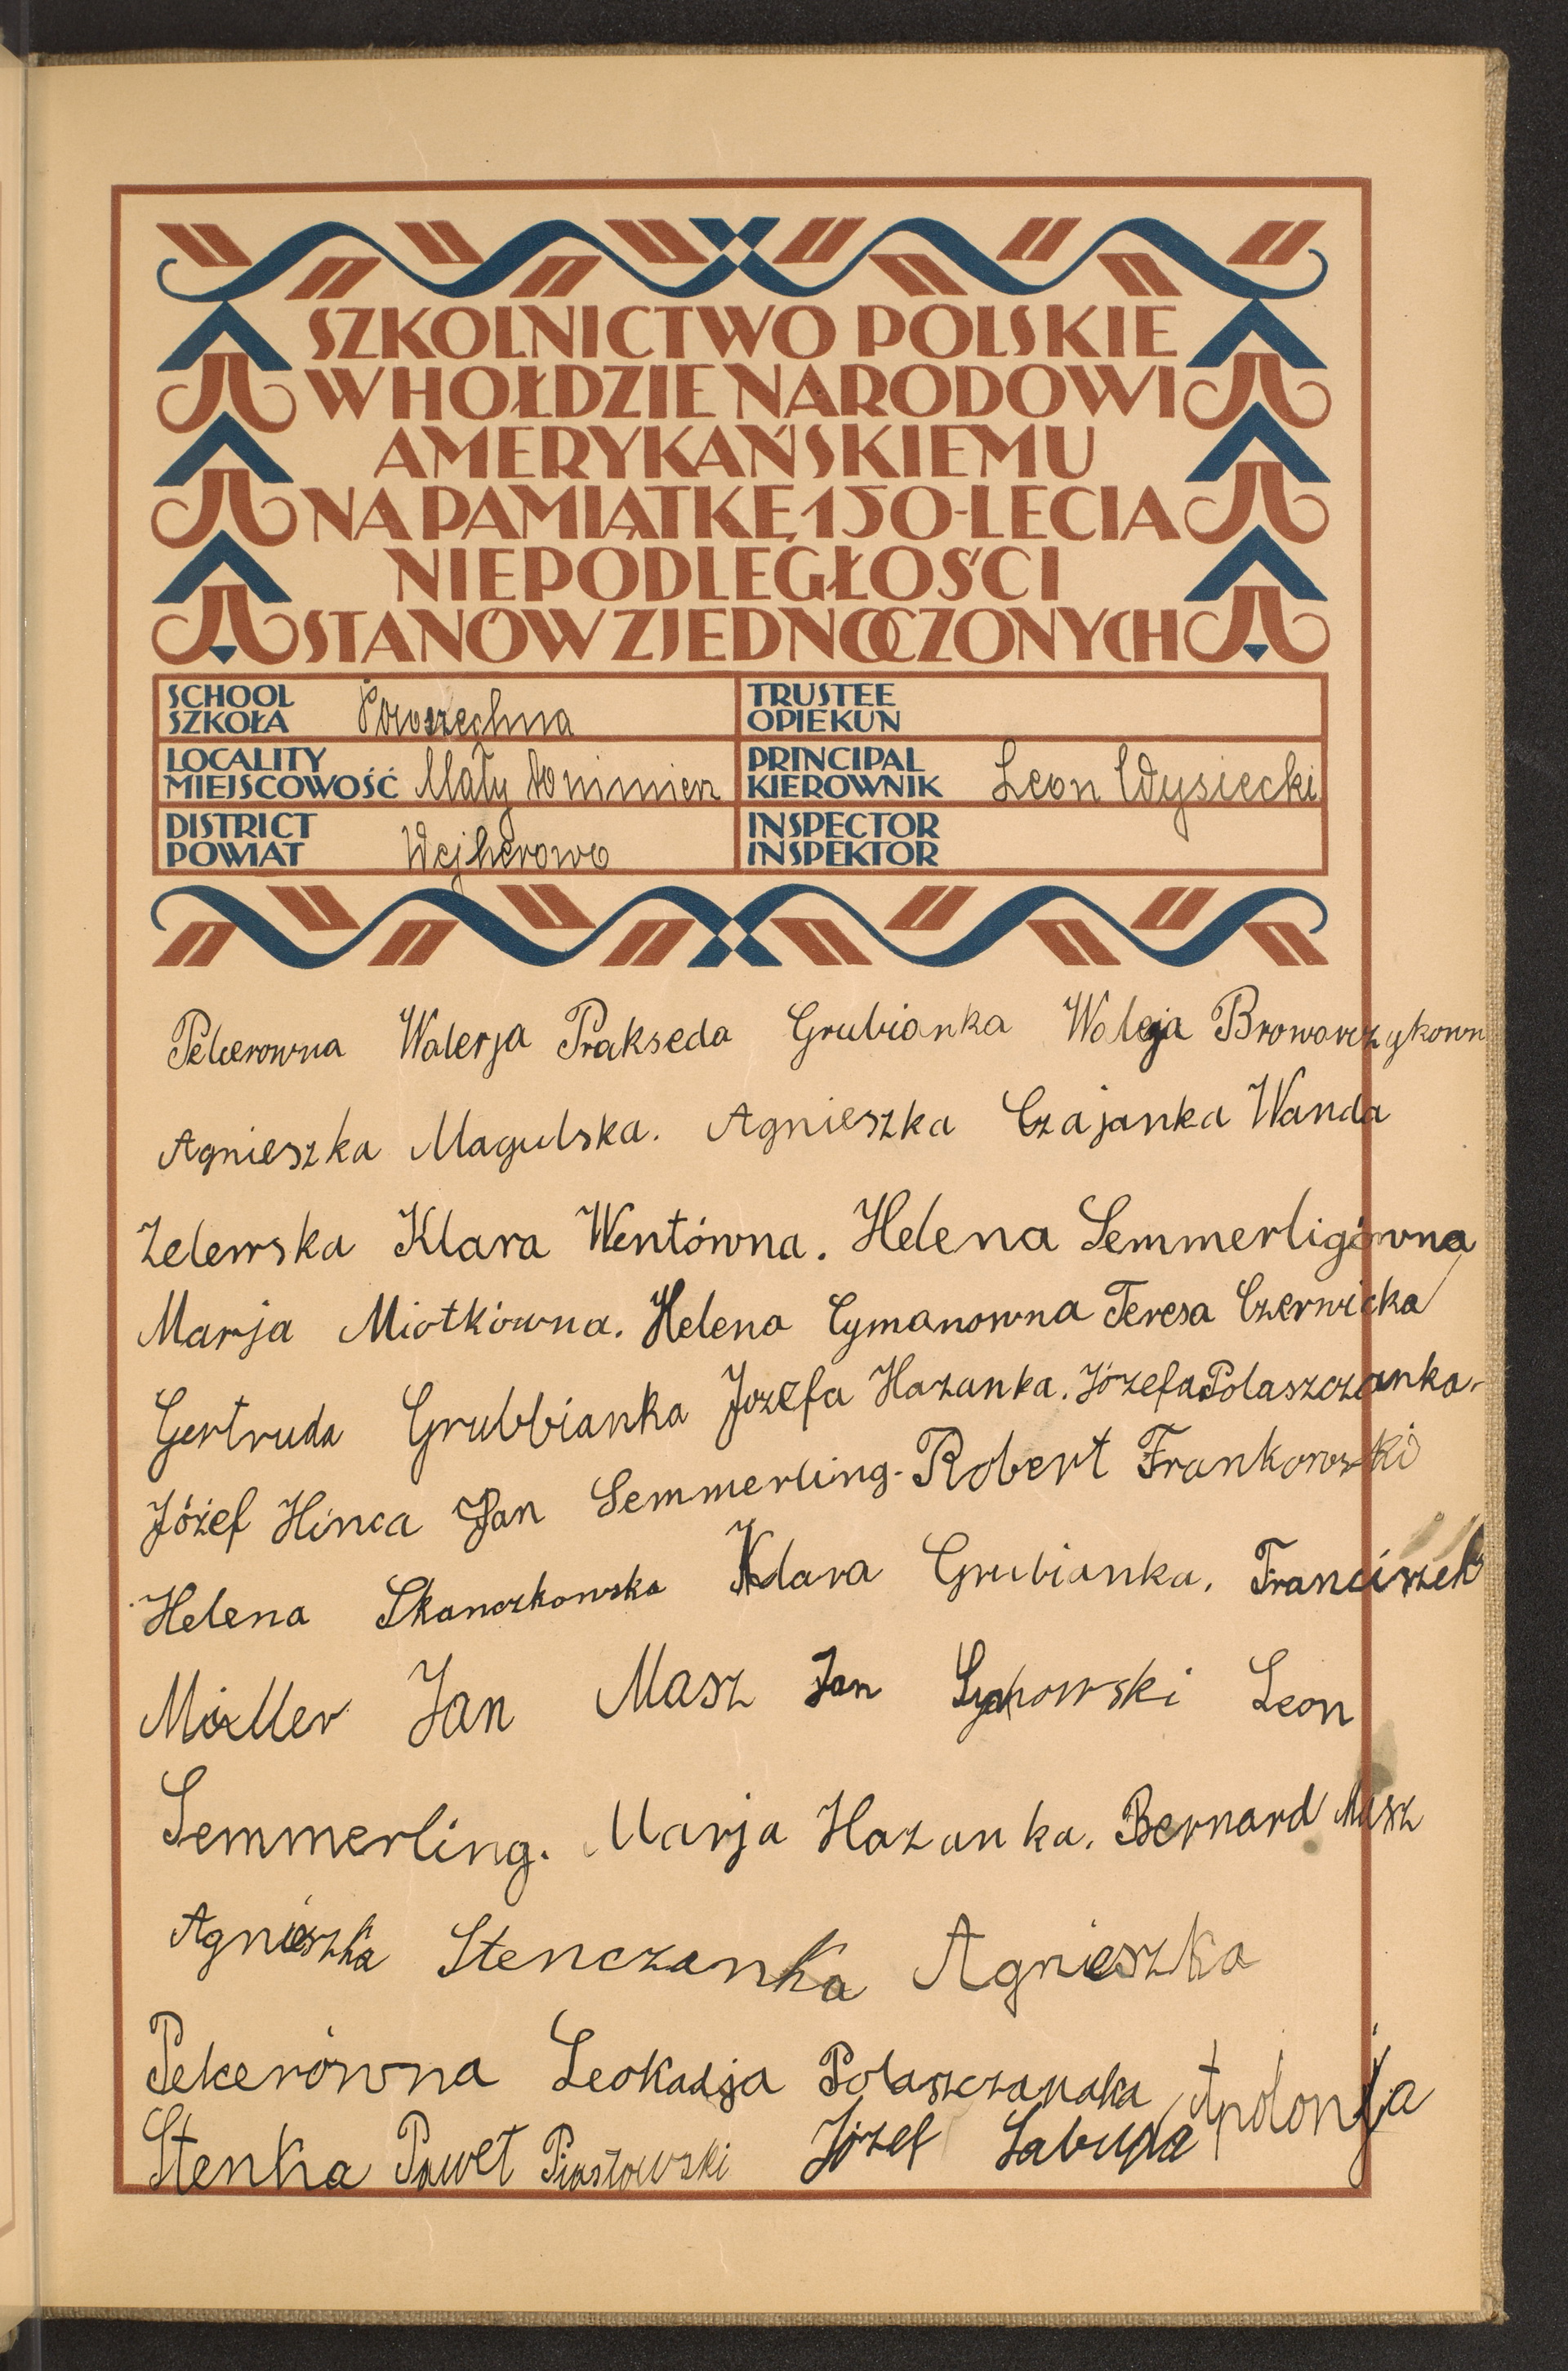 SZKOLNICTWO POLSKIE
W HOŁDZIE NARODOWI
AMERYKAŃSKIEMU
NA PAMIĄTKĘ 150-LECIA
NIEPODLEGŁOŚCI
STANÓW ZJEDNOCZONYCH
SCHOOL
SZKOŁA Powszechna
TRUSTEE
OPIEKUN
LOCALITY
MIEJSCOWOŚĆ Mały
PRINCIPAL
KIEROWNIK Leon Wysiecki
DISTRICT
POWIAT Wejherowo
INSPECTOR
INSPEKTOR
Walerja Prakseda Grubianka Browarczykown
Agnieszka Magulska. Agnieszka Czajanka Wanda
Zelewska Klara Wentówna. Helena Semmerligówna
Marja Miotkówna. Helena Cymanowna Teresa Czerwicka
Gertruda Grubbianka Jozefa Hazanka. Józefa Polaszczanka.
Józef Hinca Jan Semmerling. Robert Frankowski
Helena Skanczkowska Klara Grubianka. Franciszek
Jan Masz Jan Leon
Semmerling. Marja Hazanka. Bernard Masz
Agnieszka Stenczanka Agnieszka
Pekerówna Leokadja Polaszczanaka Apolonja
Stenka Paweł Piastowski Józef Labuda